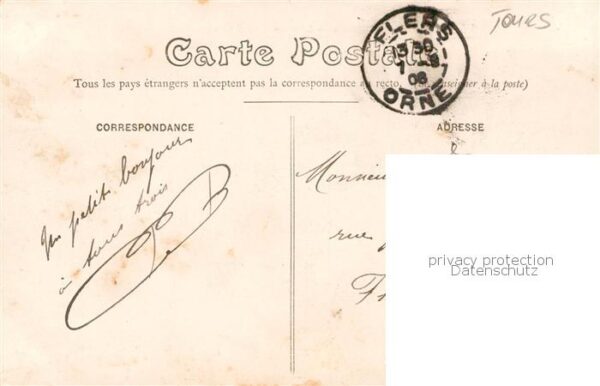 TOURS
Carte Postale
FLERS
13 30
7 -8
06
ORNE
Tous les pays étrangers n'acceptent pas la correspondance au recto. (Se renseigner à la poste)
CORRESPONDANCE
ADRESSE
Un petit bonjour
à tous trois
B
Monsieur
rue
privacy protection
Datenschutz